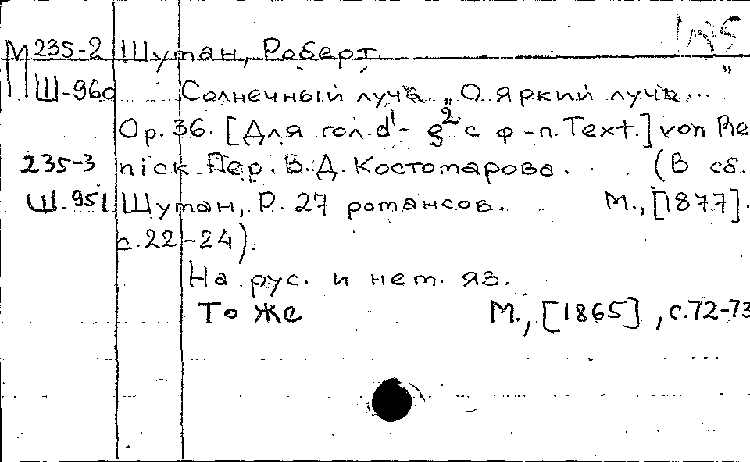 М 235-2 Шуман, Роберт
Ш-960 Солнечный луч. „О яркий луч..."
Op. 36. [Для гол. d¹- g² с ф-п. Text.] von Re
235-3 nick. Пер. В.Д. Костомарова. (В сб.
Ш.951 Шуман, Р. 27 романсов. М., [1877].
с.22-24).
На рус. и нем. яз.
То же М., [1865], с.72-73